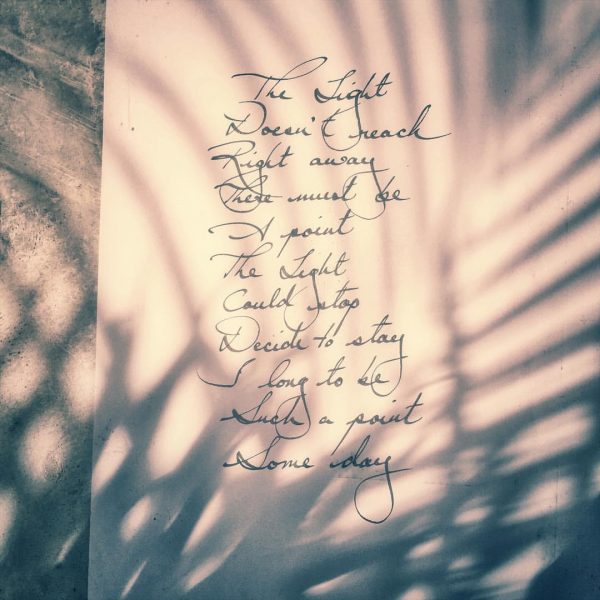 The Light
Doesn't reach
Right away
There must be
A point
The Light
Could stop
Decide to stay
I long to be
Such a point
Some day